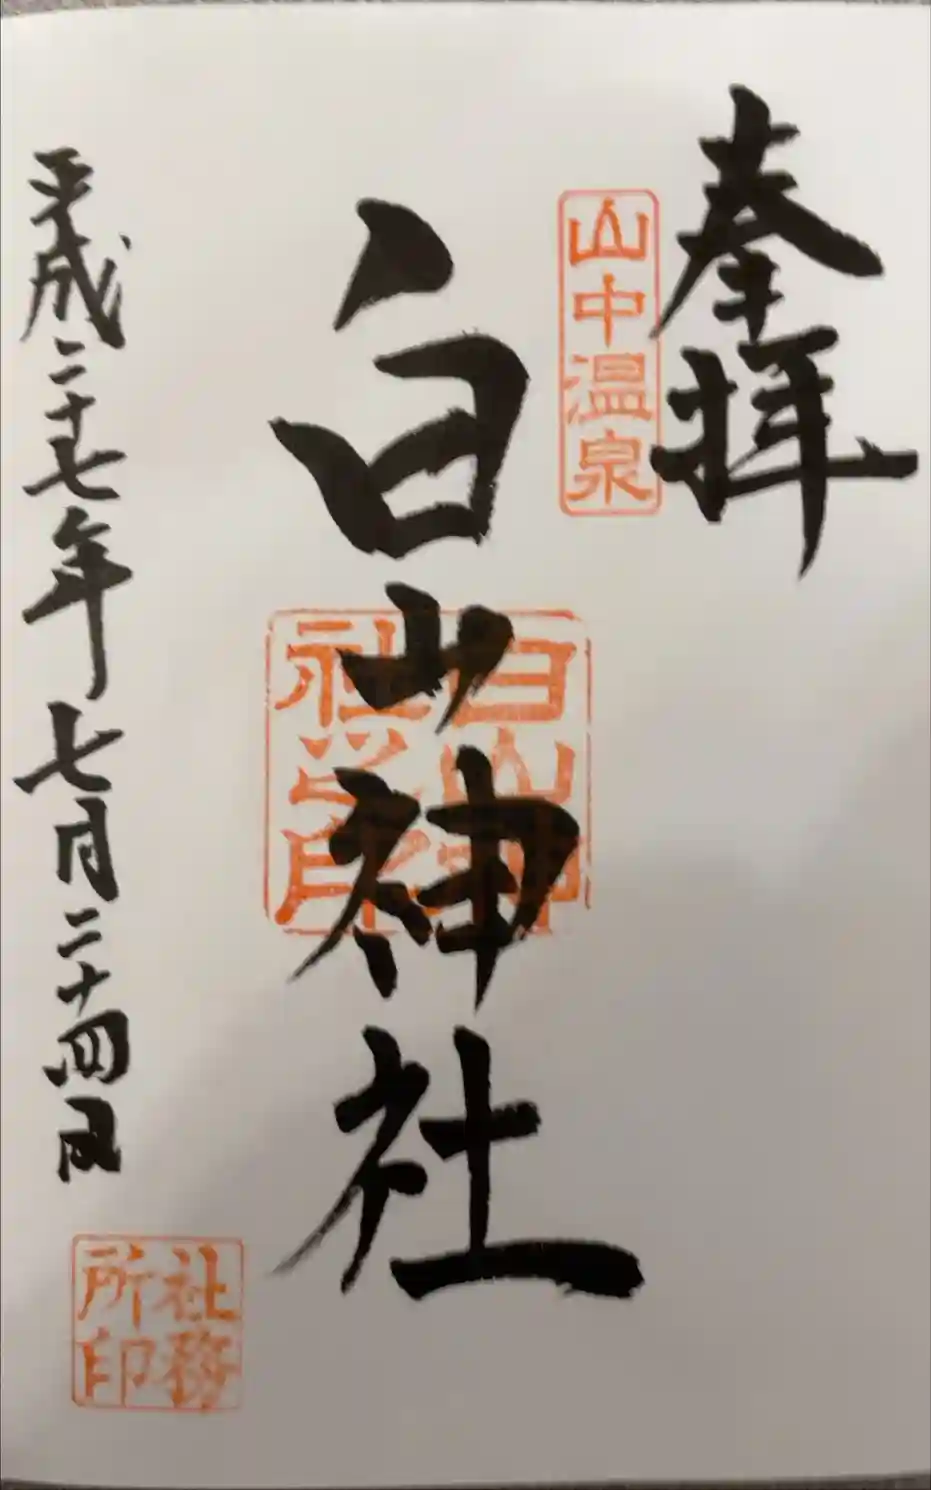 奉拝
山中温泉
白山神社
白山神
社之印
平成二十七年七月二十四日
社務
所印